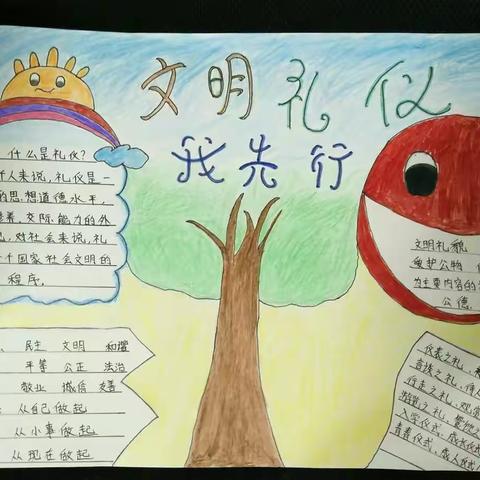 文明礼仪
我先行
什么是礼仪?
个人来说,礼仪是一
的思想道德水平,
交际能力的外
对社会来说,礼
个国家社会文明的
程序.
文明礼貌
爱护公物
为主要内容的
公德.
民主 文明 和谐
平等 公正 法治
敬业 诚信 友善
从自己做起
从小事做起
从现在做起
仪表之礼,
言谈之礼,待人
行走之礼,观赏
游览之礼,餐饮之
入学仪式,成长仪式
青春仪式,成人仪式